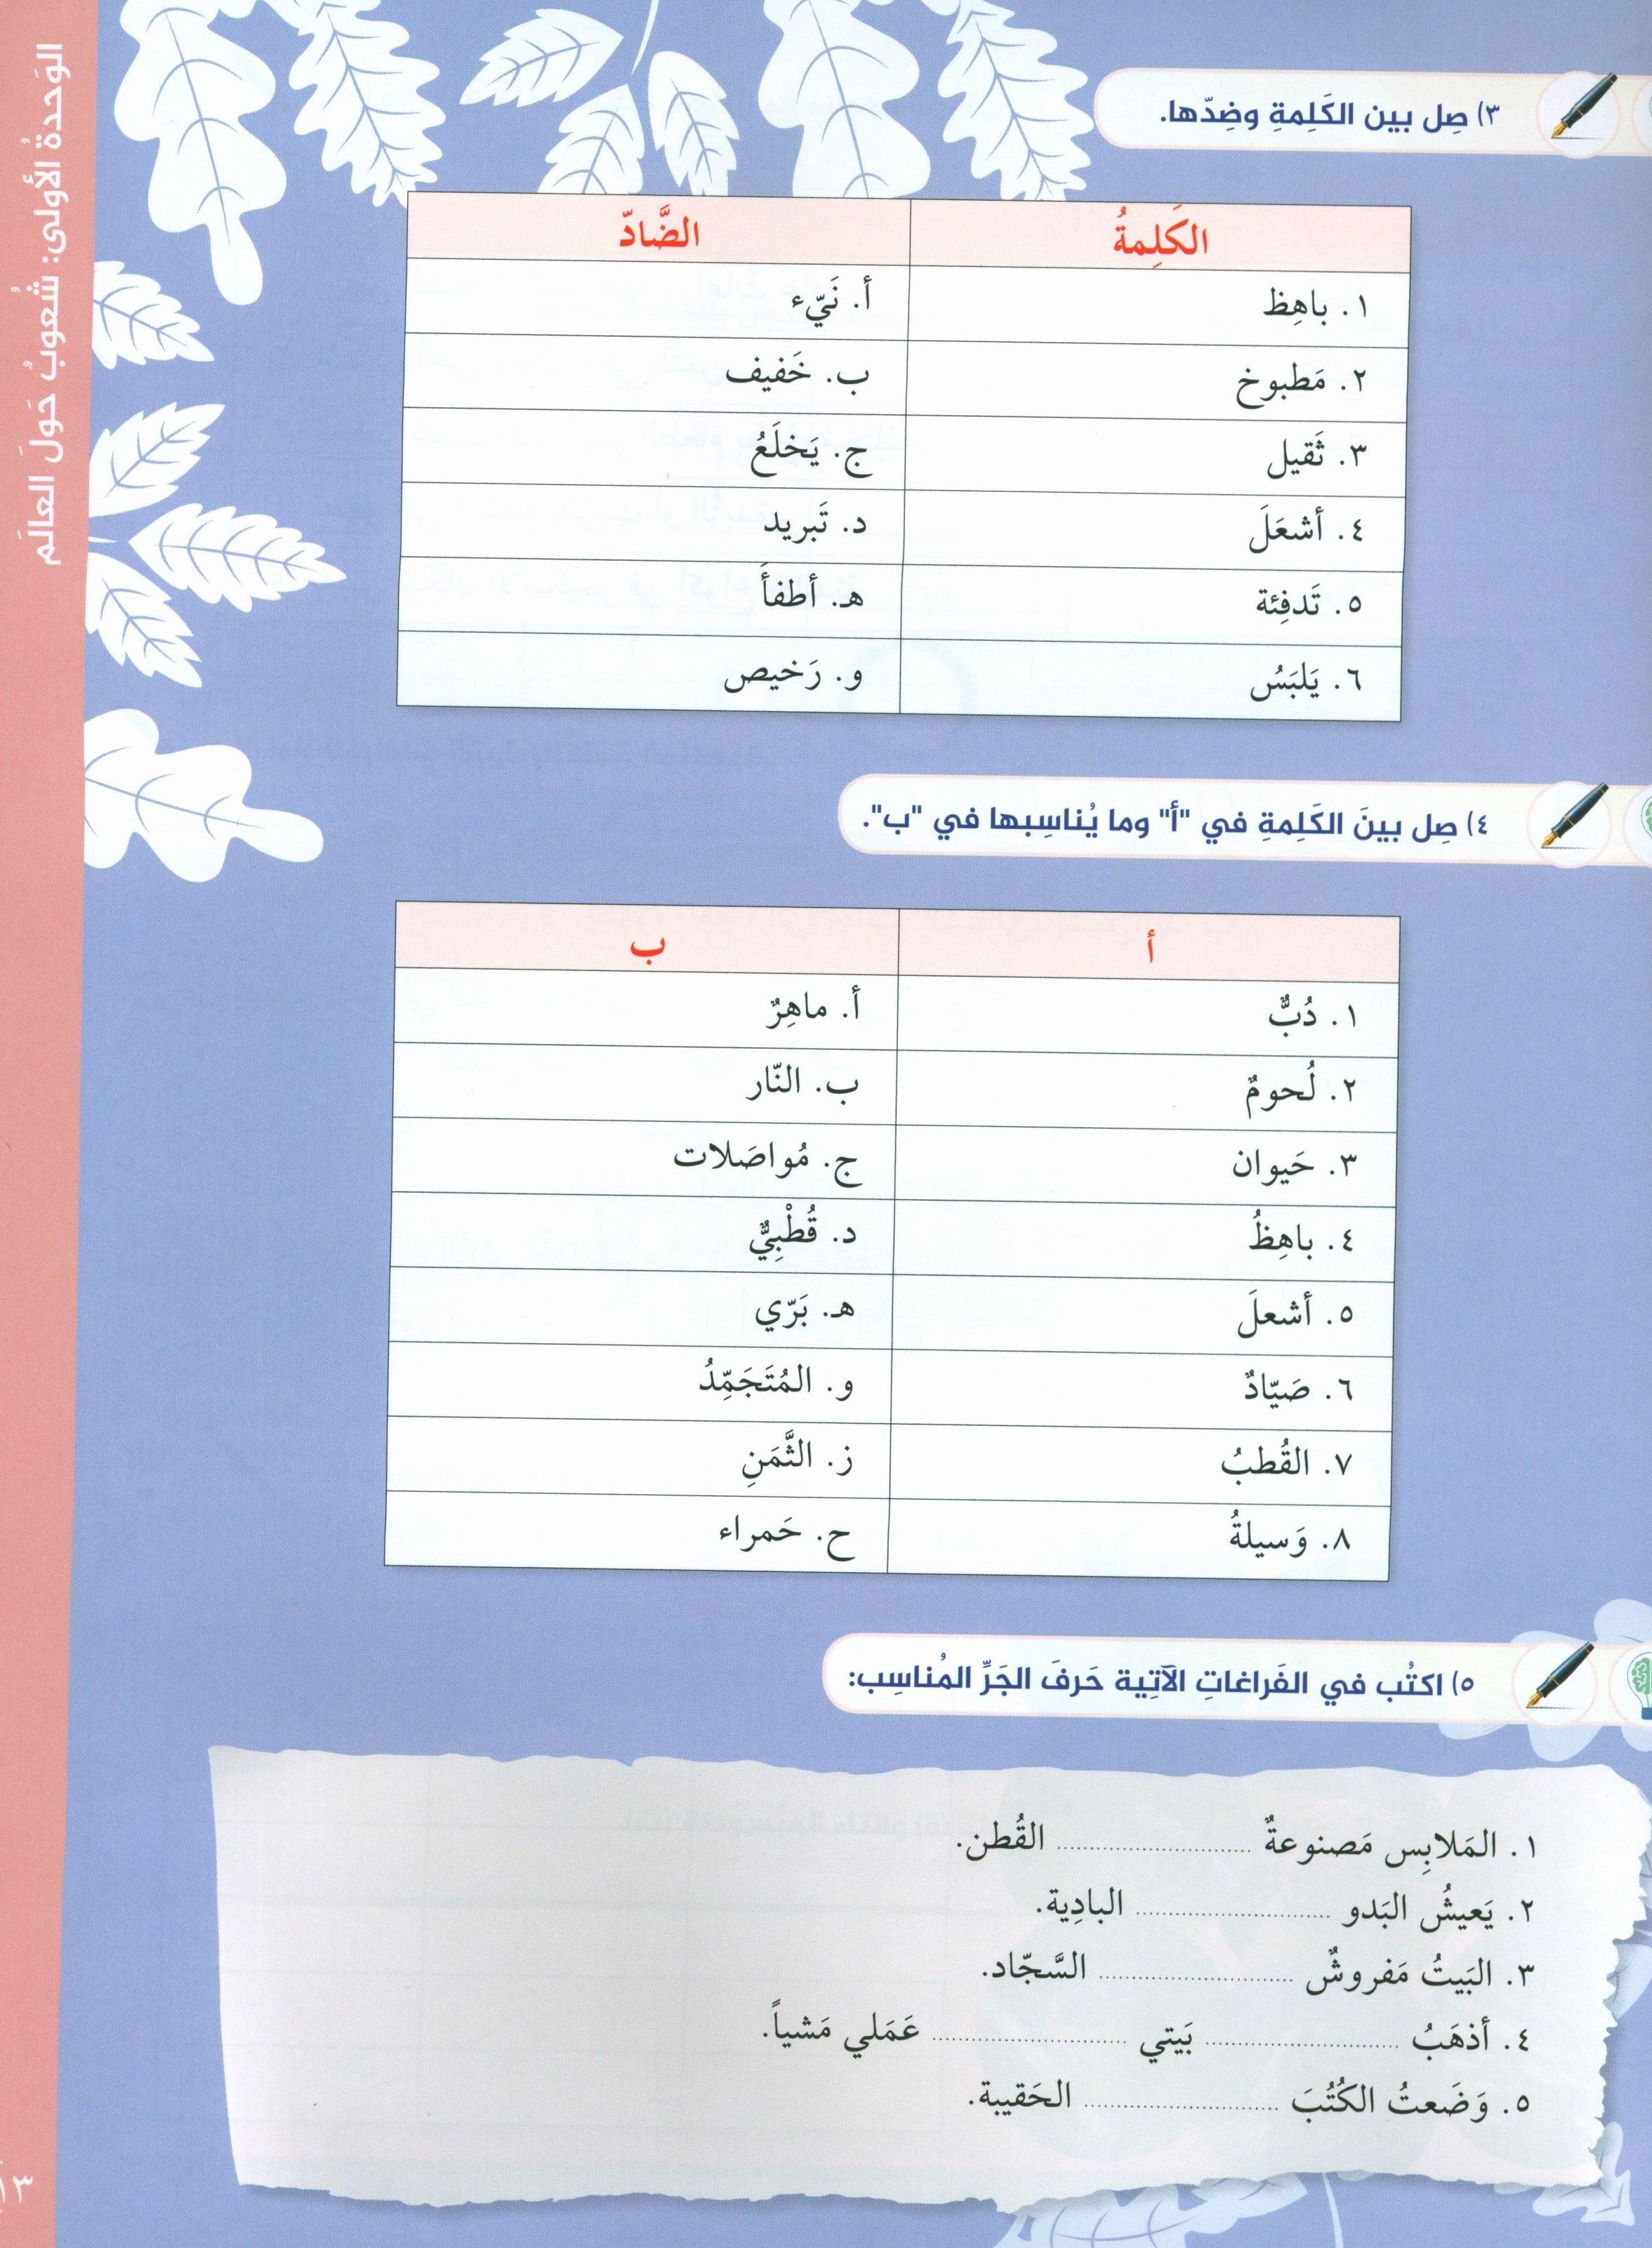 الوَحدةُ الأُولى: شُعوبُ حَولَ العالَم
٣) صِل بين الكَلِمةِ وضِدّها.
الكَلِمةُ الضَّادّ
١. باهِظ أ. نَيّء
٢. مَطبوخ ب. خَفيف
٣. ثَقيل ج. يَخلَعُ
٤. أشعَلَ د. تَبريد
٥. تَدفِئة هـ. أطفأَ
٦. يَلبَسُ و. رَخيص
٤) صِل بينَ الكَلِمةِ في "أ" وما يُناسِبها في "ب".
أ ب
١. دُبٌّ أ. ماهِرٌ
٢. لُحومٌ ب. النّار
٣. حَيوان ج. مُواصَلات
٤. باهِظُ د. قُطْبِيٌّ
٥. أشعلَ هـ. بَرّي
٦. صَيّادٌ و. المُتَجَمِّدُ
٧. القُطبُ ز. الثَّمَنِ
٨. وَسيلةُ ح. حَمراء
٥) اكتُب في الفَراغاتِ الآتِية حَرفَ الجَرِّ المُناسِب:
١. المَلابِس مَصنوعةٌ ........................ القُطن.
٢. يَعيشُ البَدو ........................ البادِية.
٣. البَيتُ مَفروشٌ ........................ السَّجّاد.
٤. أذهَبُ ........................ بَيتي ........................ عَمَلي مَشياً.
٥. وَضَعتُ الكُتُبَ ........................ الحَقيبة.
١٣